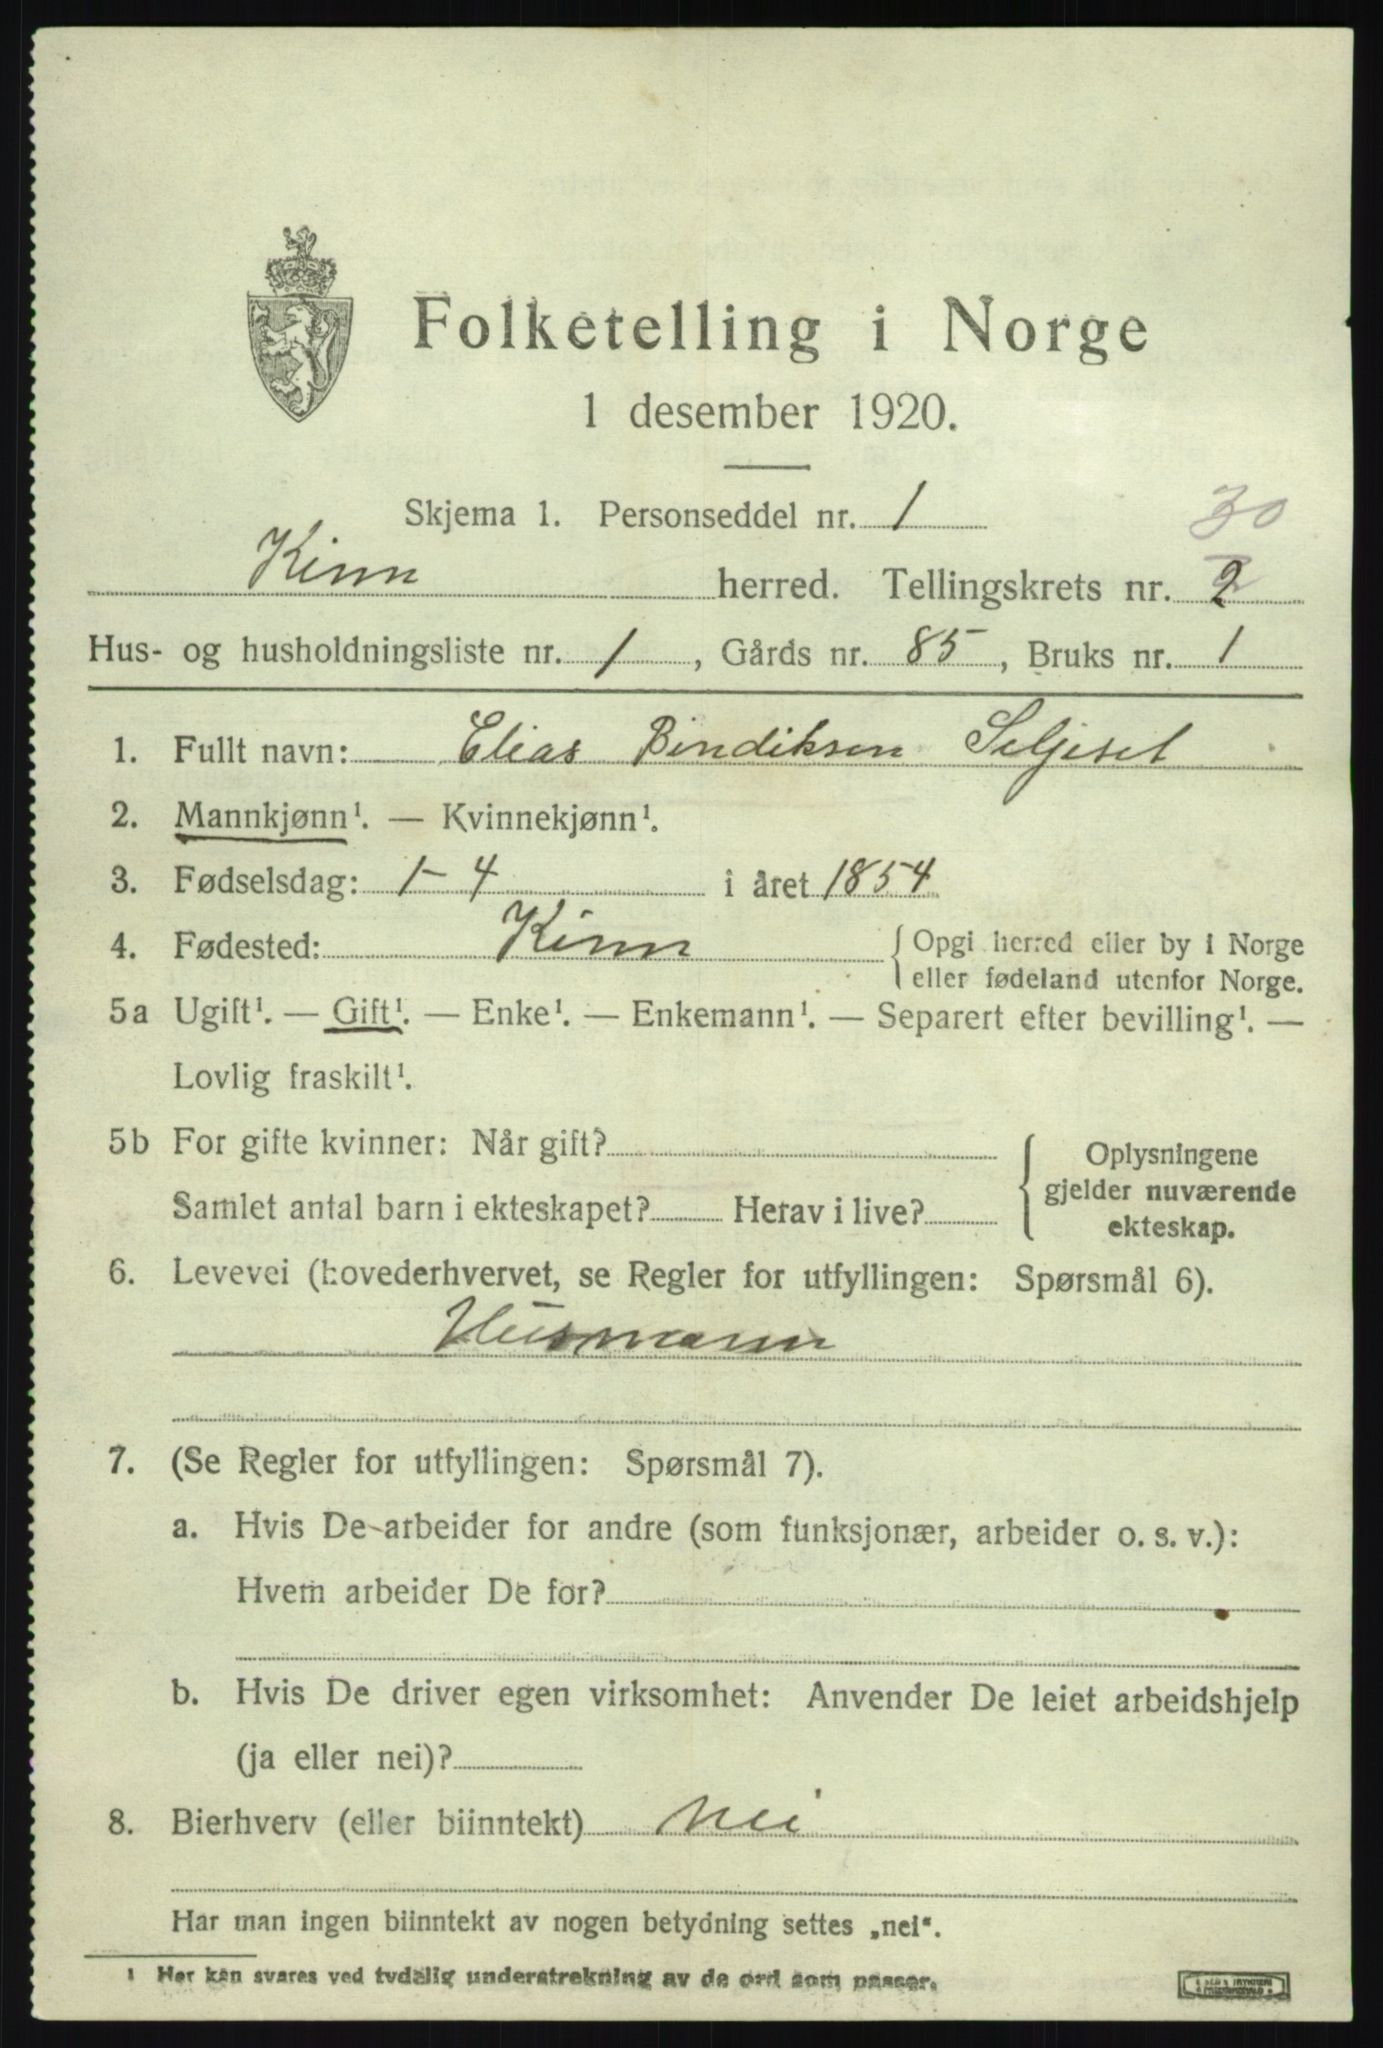 Folketelling i Norge
1 desember 1920.
Skjema 1. Personseddel nr. 1
30
Kinn herred. Tellingskrets nr. 2
Hus- og husholdningsliste nr. 1, Gårds nr. 85, Bruks nr. 1
1. Fullt navn: Elias Bindiksen Seljeset
2. Mannkjønn¹. — Kvinnekjønn¹.
3. Fødselsdag: 1-4 i året 1854
4. Fødested: Kinn { Opgi herred eller by i Norge
eller fødeland utenfor Norge.
5a Ugift¹. — Gift¹. — Enke¹. — Enkemann¹. — Separert efter bevilling¹. —
Lovlig fraskilt¹.
5b For gifte kvinner: Når gift?
Samlet antal barn i ekteskapet? Herav i live?
Oplysningene
gjelder nuværende
ekteskap.
6. Levevei (hovederhvervet, se Regler for utfyllingen: Spørsmål 6).
Husmann
7. (Se Regler for utfyllingen: Spørsmål 7).
a. Hvis De arbeider for andre (som funksjonær, arbeider o. s. v.):
Hvem arbeider De for?
b. Hvis De driver egen virksomhet: Anvender De leiet arbeidshjelp
(ja eller nei)?
8. Bierhverv (eller biinntekt) Nei
Har man ingen biinntekt av nogen betydning settes „nei“.
¹ Her kan svares ved tydelig understrekning av de ord som passer.